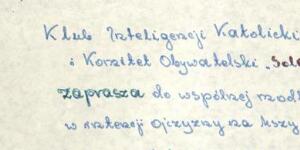 Klub Inteligencji Katolicki
i Komitet Obywatelski „Sol
zaprasza do wspólnej modl
w intencji Ojczyzny na Mszy